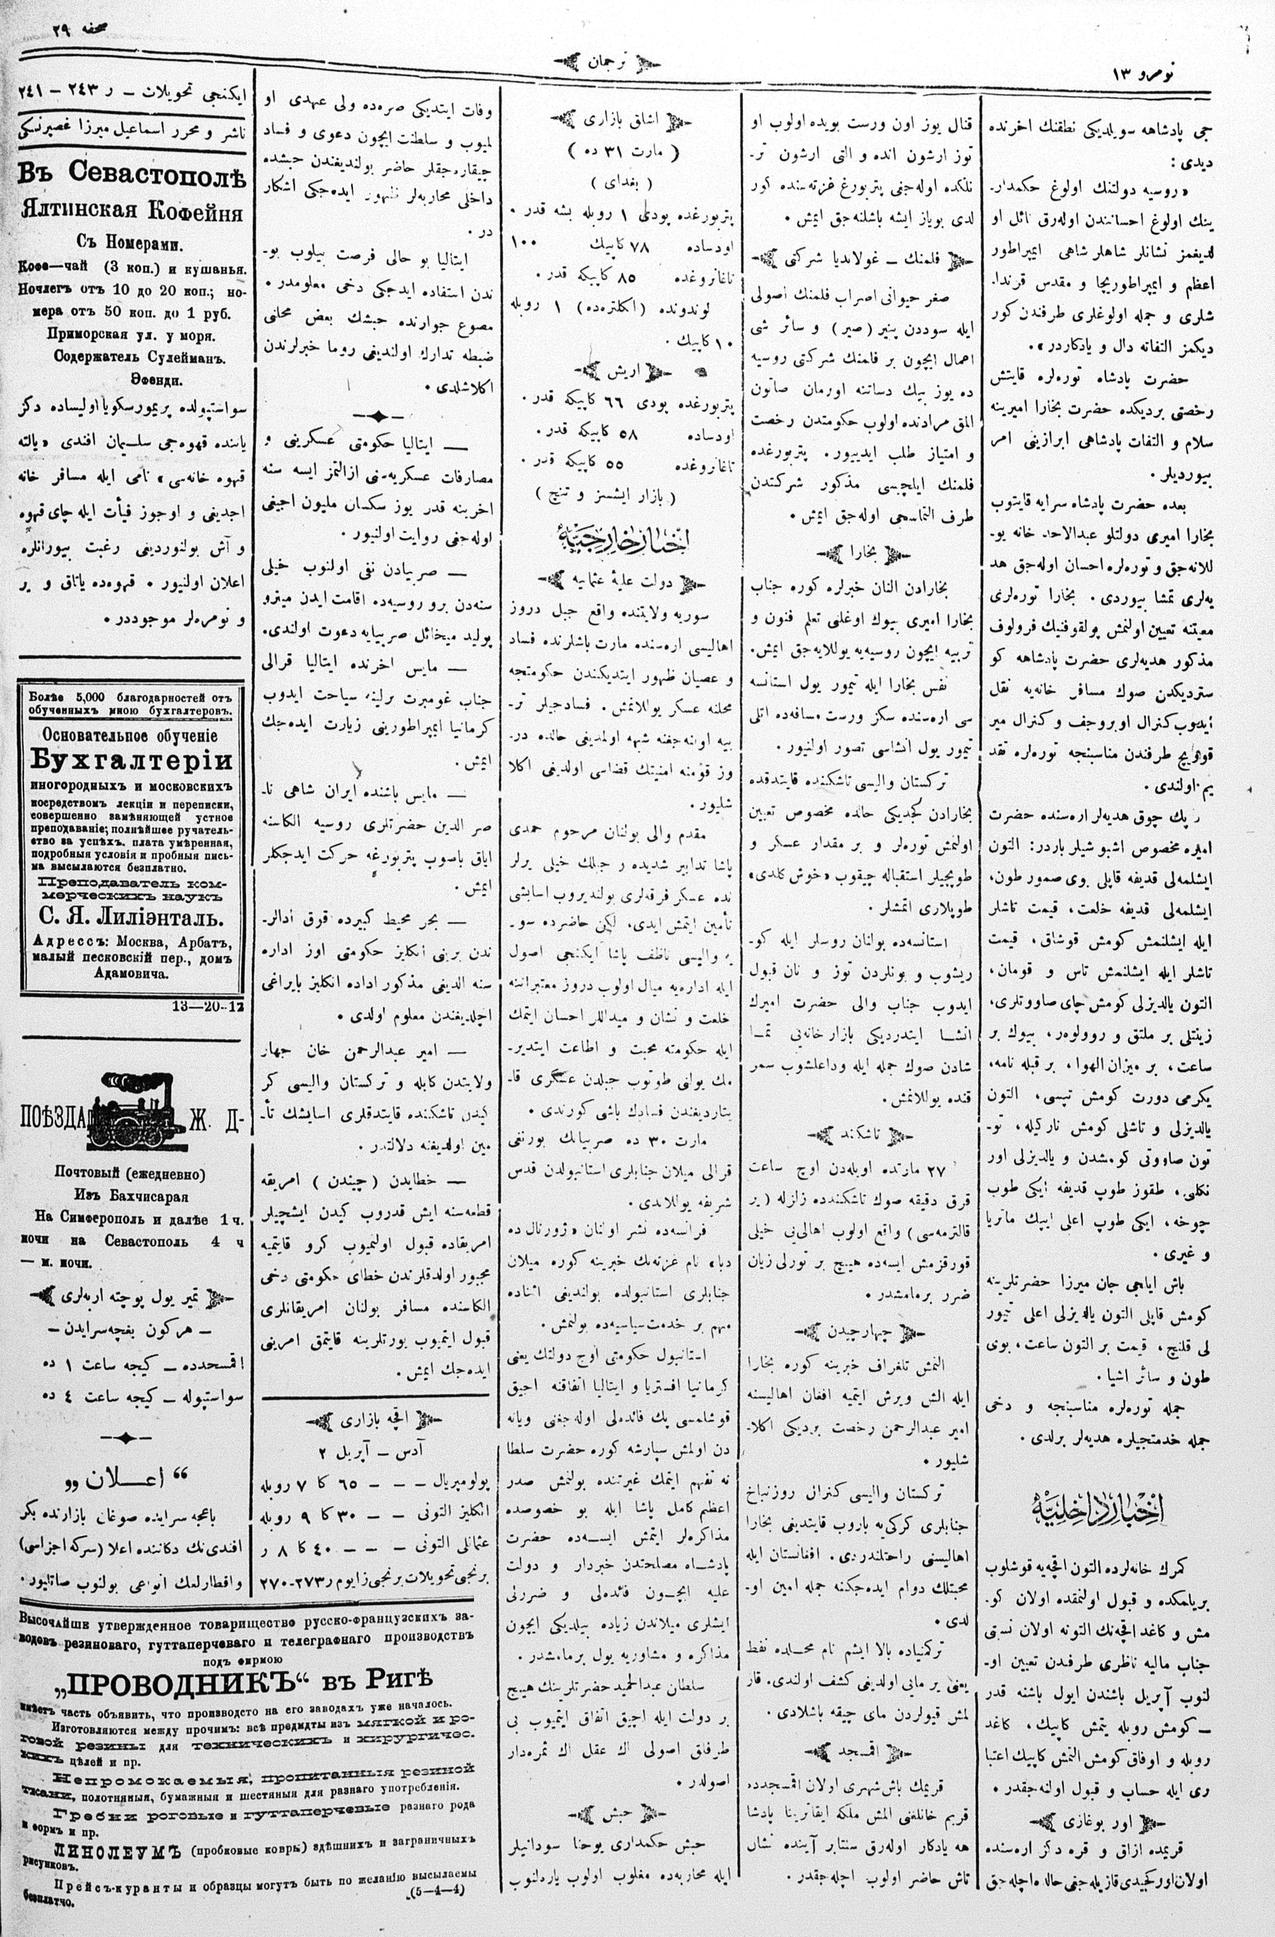 نومرو ١٣
ترجمان
صحفه ٢٩
جی پادشاهه سویلدیکی نطقنك اخرنده
دیدی :
« روسیه دولتنك اولوغ حکمدار-
ینك اولوغ احسانندن اوله‌رق نائل او
لدیغمز نشانلر شاهلر شاهی ایمپراطور
اعظم و ایمپراطوریچا و مقدس قرندا-
شلری و جمله اولوغلری طرفندن کور
دیکمز التفاته دال و یادکاردر ».
حضرت پادشاه توره‌لره قایتش
رخصتی بردیکده حضرت بخارا امیرینه
سلام و التفات پادشاهی ابرازینی امر
بیوردیلر.
بعده حضرت پادشاه سرایه قایتوب
بخارا امیری دولتلو عبدالاحد خانه یو-
للانه‌جق و توره‌لره احسان اوله‌جق هد
یه‌لری تمشا بیوردی. بخارا توره‌لری
معیتنه تعیین اولنمش پولقوفنیك فرولوف
مذکور هدیه‌لری حضرت پادشاهه کو
ستردیکدن صوك مسافر خانه‌یه نقل
ایدوب کنرال اوبروچف و کنرال میر
قوویچ طرفندن مناسبنجه توره‌لره تقد
یم اولندی.
پك چوق هدیه‌لر اره‌سنده حضرت
امیره مخصوص اشبو شیلر باردر: التون
ایشلمه‌لی قدیفه قاپلی بوی صمور طون،
ایشلمه‌لی قدیفه خلعت، قیمت تاشلر
ایله ایشلنمش کومش قوشاق، قیمت
تاشلر ایله ایشلنمش تاس و قومان،
التون یالدیزلی کومش چای صاووتلری،
زینتلی بر ملتق و روولوهر، بیوك بر
ساعت، بر میزان الهوا، بر قبله نامه،
یکرمی دورت کومش تپسی، التون
یالدیزلی و تاشلی کومش نارکیله، تو-
تون صاووتی کومشدن و یالدیزلی اور
نکلی، طقوز طوپ قدیفه ایکی طوپ
چوخه، ایکی طوپ اعلی ایپك ماتریا
و غیری.
باش ایلچی جان میرزا حضرتلرینه
کومش قاپلی التون یالدیزلی اعلی تیمور
لی قلنچ، قیمت بر التون ساعت، بوی
طون و سائر اشیا.
جمله توره‌لره مناسبنجه و دخی
جمله خدمتجیلره هدیه‌لر برلدی.
اخبار داخلیه
کمرك خانه‌لرده التون اقچه‌یه قوشلوب
بریلمکده و قبول اولنمقده اولان کو-
مش و کاغد اقچه‌نك التونه اولان نسبتی
جناب مالیه ناظری طرفندن تعیین او-
لنوب آپریل باشندن ایول باشنه قدر
– کومش روبله یتمش کاپیك، کاغد
روبله و اوفاق کومش التمش کاپیك اعتبا
ری ایله حساب و قبول اولنه‌جقدر.
اور بوغازی
قریمده ازاق و قره دکز اره‌سنده
اولان اورکجیدی قازیله‌جغی حالده اچله‌جق
قنال یوز اون ورست بویده اولوب او
توز ارشون انده و التی ارشون تر-
نلکده اوله‌جغی پتربورغ غزته‌سنده کور
لدی بویاز ایشه باشلنه‌جق ایمش.
فلمنك – غولاندیا شرکتی
صغر حیوانی اصراب فلمنك اصولی
ایله سوددن پنیر (صیر) و سائر شی
اهمال ایچون بر فلمنك شرکتی روسیه
ده یوز بیك دساتنه اورمان صاتون
المق مرادنده اولوب حکومتدن رخصت
و امتیاز طلب ایدییور. پتربورغده
فلمنك ایلچیسی مذکور شرکتدن
طرف التماسجی اوله‌جق ایمش.
بخارا
بخارادن النان خبرلره کوره جناب
بخارا امیری بیوك اوغلنی تعلم فنون و
تربیه ایچون روسیه‌یه یوللایه‌جق ایمش.
نفس بخارا ایله تیمور یول استانسه
سی اره‌سنده سکز ورست مسافه‌ده اتلی
تیمور یول انشاسی تصور اولنیور.
ترکستان والیسی تاشکنده قایتدقده
بخارادن کجدیکی حالده مخصوص تعیین
اولنمش توره‌لر و بر مقدار عسکر و
طوپجیلر استقباله چیقوب «خوش کلدی»
طوپلاری اتمشلر.
استانسه‌ده بولنان روسلر ایله کو-
ریشوب و بونلردن توز و نان قبول
ایدوب جناب والی حضرت امیرك
انشا ایتدردیکی بازار خانه‌یی تما-
شادن صوك جمله ایله وداعلشوب سمر
قنده یوللانمش.
تاشکند
٢٧ مارتده اویله‌دن اوچ ساعت
قرق دقیقه صوك تاشکندده زلزله (یر
قالترمه‌سی) واقع اولوب اهالی‌یی خیلی
قورقزمش ایسه‌ده هیچ بر تورلی زیان
ضرر برمامشدر.
چهارچیدن
النمش تلغراف خبرینه کوره بخارا
ایله الش ویرش ایتمیه افغان اهالیسنه
امیر عبدالرحمن رخصت بردیکی اکلا-
شلیور.
ترکستان والیسی کنرال روزنباخ
جنابلری کرکی‌یه باروب قایتدیغی بخارا
اهالیسنی راحتلندردی. افغانستان ایله
محبتلك دوام ایده‌جکنه جمله امین او-
لدی.
ترکمنیاده بالا ایشم نام محلده نفط
یعنی یر مایی اولدیغی کشف اولندی. قاز
لمش قیولردن مای چیقه باشلادی.
اقمسجد
قریمك باش شهری اولان اقمسجدده
قریم خانلغنی المش ملکه ایقاترینا پادشا
هه یادکار اوله‌رق سنتابر آینده نشان
تاش حاضر اولوب اچله‌جقدر.
اشلق بازاری
( مارت ٣١ ده )
( بغدای )
پتربورغده پودی ١ روبله بشه قدر.
اودساده ٧٨ کاپیك ١٠٠
تاغانروغده ٨٥ کاپیکه قدر.
لوندونده (انکلتره‌ده) ١ روبله
١٠ کاپیك.
اریش
پتربورغده پودی ٦٦ کاپیکه قدر.
اودساده ٥٨ کاپیکه قدر.
تاغانروغده ٥٥ کاپیکه قدر.
( بازار ایشسز و تنچ )
اخبار خارجیه
دولت علیهٔ عثمانیه
سوریه ولایتنده واقع جبل دروز
اهالیسی اره‌سنده مارت باشلرنده فساد
و عصیان ظهور ایتدیکندن حکومتجه
محلنه عسکر یوللانمش. فسادجیلر تر-
بیه اولنه‌جغنه شبهه اولمدیغی حالده در-
وز قومنه امنیتك قضاسی اولدیغی اکلا
شلیور.
مقدم والی بولنان مرحوم حمدی
پاشا تدابیر شدیده و جبلك خیلی یرلر
نده عسکر فرقه‌لری بولندیروب اسایشی
تأمین ایتمش ایدی، لکن حاضرده سو-
یه والیسی ناظف پاشا ایکنجی اصول
ایله اداره‌یه میال اولوب دروز معتبراننه
خلعت و نشان و میداللر احسان ایتمك
ایله حکومته محبت و اطاعت ایتدیر-
مك یولنی طوتوب جبلدن عسکری قا-
یتاردیغندن فسادك باشی کورندی.
مارت ٣٠ ده صربیانك بورنغی
قرالی میلان جنابلری استانبولدن قدس
شریفه یوللاندی.
فرانسه‌ده نشر اولنان «ژورنال ده
دبا» نام غزته‌نك خبرینه کوره میلان
جنابلری استانبولده بولندیغی اثناده
مهم بر خدمت سیاسیه‌ده بولنمش.
استانبول حکومتی اوج دولتك یعنی
کرمانیا افستریا و ایتالیا اتفاقنه اچیق
قوشلمسی پك فائده‌لی اوله‌جغی ویانه
دن اولمش سپارشه کوره حضرت سلطا
نه تفهم ایتمك غیرتنده بولنمش صدر
اعظم کامل پاشا ایله بو خصوصده
مذاکره‌لر ایتمش ایسه‌ده حضرت
پادشاه مصلحتدن خبردار و دولت
علیه ایچون فائده‌لی و ضررلی
ایشلری میلاندن زیاده بیلدیکی ایچون
مذاکره و مشاوریه یول برمامشدر.
سلطان عبدالحمید حضرتلرینك هیچ
بر دولت ایله اچیق اتفاق ایتمیوب بی
طرفلق اصولی اك عقل اك ثمره‌دار
اصولدر.
حبش
حبش حکمداری یوحنا سودانیلر
ایله محاربه‌ده مغلوب اولوب یاره‌لنوب
وفات ایتدیکی صره‌ده ولی عهدی او
لمیوب و سلطنت ایچون دعوی و فساد
چیقاره‌جقلر حاضر بولندیغندن حبشده
داخلی محاربه‌لر ظهور ایده‌جکی اشکار
در.
ایتالیا بو حالی فرصت بیلوب بو-
ندن استفاده ایدجکی دخی معلومدر.
مصوع جوارنده حبشك بعض محلنی
ضبطه تدارك اولندیغی روما خبرلرندن
اکلاشلدی.
— ایتالیا حکومتی عسکرینی و
مصارفات عسکریه‌نی ازالتمز ایسه سنه
اخرینه قدر یوز سکسان ملیون اچیغی
اوله‌جغی روایت اولنیور.
— صربیادن نفی اولنوب خیلی
سنه‌دن برو روسیه‌ده اقامت ایدن میترو
پولید میخائل صربیایه دعوت اولندی.
— مایس اخرنده ایتالیا قرالی
جناب غومبرت برلینه سیاحت ایدوب
کرمانیا ایمپراطورینی زیارت ایده‌جك
ایمش.
— مایس باشنده ایران شاهی نا-
صر الدین حضرتلری روسیه الکاسنه
ایاق باصوب پتربورغه حرکت ایدجکلر
ایمش.
— بحر محیط کبیرده قوق ادالر-
ندن برینی انکلیز حکومتی اوز اداره
سنه الدیغی مذکور اداده انکلیز بایراغی
اچلدیغندن معلوم اولدی.
— امیر عبدالرحمن خان چهار
ولایتدن کابله و ترکستان والیسی کر
کیدن تاشکنده قایتدقلری اسایشك تأ-
مین اولدیغنه دلالتدر.
— خطایدن (چیندن) امریقه
قطعه‌سنه ایش قدروب کیدن ایشچیلر
امریقاده قبول اولنمیوب کرو قایتمیه
مجبور اولدقلرندن خطای حکومتی دخی
الکاسنده مسافر بولنان امریقانلری
قبول ایتمیوب یورتلرینه قایتمق امرینی
ایده‌جك ایمش.
اقچه بازاری
آدس – آپریل ٢
پولومپریال – – – ٦٥ کا ٧ روبله
انکلیز التونی – – – ٣٠ کا ٩ روبله
عثمانلی التونی – – – ٤٠ کا ٨ ر
برنجی تحویلات برنجی زایوم ر ٢٧٣-٢٧٠
ایکنجی تحویلات – ر ٢٤٣ – ٢٤١
ناشر و محرر اسماعیل میرزا غصپرنسکی
Въ Севастополѣ
Ялтинская Кофейня
Съ Номерами.
Кофе—чай (3 коп.) и кушанья.
Ночлегъ отъ 10 до 20 коп.; но-
мера отъ 50 коп. до 1 руб.
Приморская ул. у моря.
Содержатель Сулейманъ.
Эфенди.
سواستپولده پریمورسکویا اولیساده دکز
یاننده قهوه‌جی سلیمان افندی «یالته
قهوه خانه‌سی» نامی ایله مسافر خانه
اچدیغی و اوجوز فیأت ایله چای قهوه
و آش بولنوردیغی رغبت بیورانلره
اعلان اولنیور. قهوه‌ده یاتاق و یر
و نومره‌لر موجوددر.
Болѣе 5,000 благодарностей отъ
обученныхъ мною бухгалтеровъ.
Основательное обученіе
Бухгалтеріи
иногородныхъ и московскихъ
посредствомъ лекціи и переписки,
совершенно замѣняющей устное
преподаваніе; полнѣйшее ручатель-
ство за успѣхъ. плата умѣренная,
подробныя условія и пробныя пись-
ма высылаются безплатно.
Преподаватель ком-
мерческихъ наукъ
С. Я. Лиліэнталь.
Адрессъ: Москва, Арбатъ,
малый песковскій пер., домъ
Адамовича.
13—20—12
ПОѢЗДА Ж. Д-
Почтовый (ежедневно)
Изъ Бахчисарая
На Симферополь и далѣе 1 ч.
ночи на Севастополь 4 ч
— м. ночи.
تمیر یول پوچته اربه‌لری
– هرکون بغچه‌سرایدن –
اقمسجدده – کیجه ساعت ١ ده
سواستپوله – کیجه ساعت ٤ ده
“ اعلان „
باغچه سرایده صوغان بازارنده بکر
افندی‌نك دکاننده اعلا (سرکه اجزاسی)
واقطارلعك انواعی بولنوب صاتلیور.
Высочайше утвержденное товарищество русско-французскихъ за-
водовъ резиноваго, гуттаперчеваго и телеграфнаго производствъ
подъ фирмою
„ПРОВОДНИКЪ“ въ Ригѣ
имѣетъ часть объявить, что производсто на его заводахъ уже началось.
Изготовляются между прочимъ: всѣ предмдты изъ мягкой и ро-
говой резины для техническихъ и хирургичес-
кихъ цѣлей и пр.
Непромокаемыя, пропитанныя резиной
ткани, полотняныя, бумажныя и шестяныя для разнаго употребленія.
Гребни роговые и гуттаперчевые разнаго рода
и формъ и пр.
ЛИНОЛЕУМЪ (пробковые ковры) здѣшнихъ и заграничныхъ
рисунковъ.
Прейсъ-куранты и образцы могутъ быть по желанію высылаемы
безплатчо.
(5—4—4)